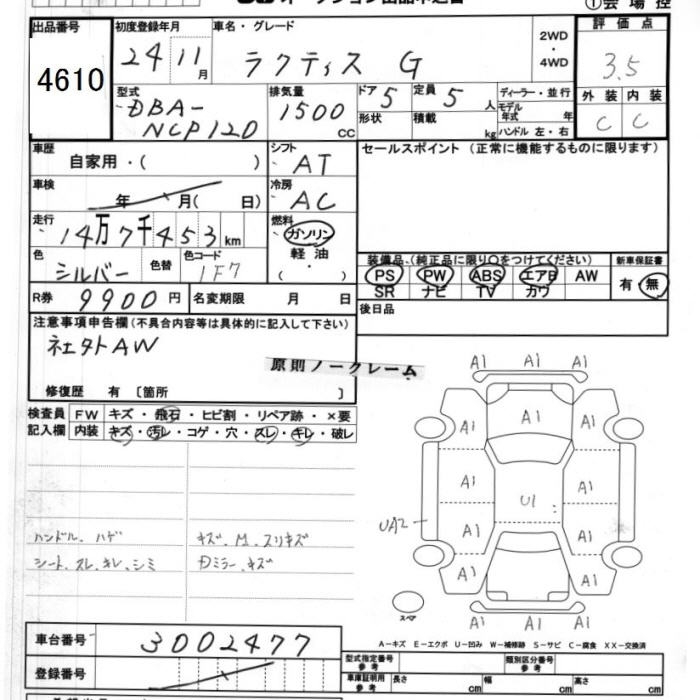 オークション出品申込書
①会場控
出品番号 初度登録年月 車名・グレード 評価点
4610 24 11月 ラクティス G 2WD・4WD 3.5
型式 DBA-NCP120 排気量 1500 CC ドア 5 定員 5 人 ディーラー・並行 外装 内装
形状 積載 kg モデル年式 年 ハンドル 左・右 C C
車歴 自家用・( ) シフト AT セールスポイント (正常に機能するものに限ります)
車検 年 月( 日) 冷房 AC
走行 14万7千453km 燃料 ガソリン 軽油・( )
色 シルバー 色替 色コード 1F7
装備品 (純正品に限り○をつけてください) 新車保証書
PS PW ABS エアB AW 有・無
SR ナビ TV カワ
R券 9900円 名変期限 月 日 後日品
注意事項申告欄(不具合内容等は具体的に記入して下さい)
社外AW
原則ノークレーム
修復歴 有 〔箇所 〕
検査員 FW キズ・飛石・ヒビ割・リペア跡・×要
記入欄 内装 キズ・汚レ・コゲ・穴・スレ・キレ・破レ
ハンドル、ハゲ キズ、M、スリキズ
シート、スレ、キレ、シミ Dミラー、キズ
A1 A1 A1
A1 A1 A1
A1 U1 A1
UA2 A1 A1
A1 A1
A1 A1 A1
スペア
A-キズ E-エクボ U-凹み W-補修跡 S-サビ C-腐食 XX-交換済
車台番号 3002477
登録番号
型式指定番号 参考 類別区分番号 参考
車庫証明用 参考 長さ cm 幅 cm 高さ cm